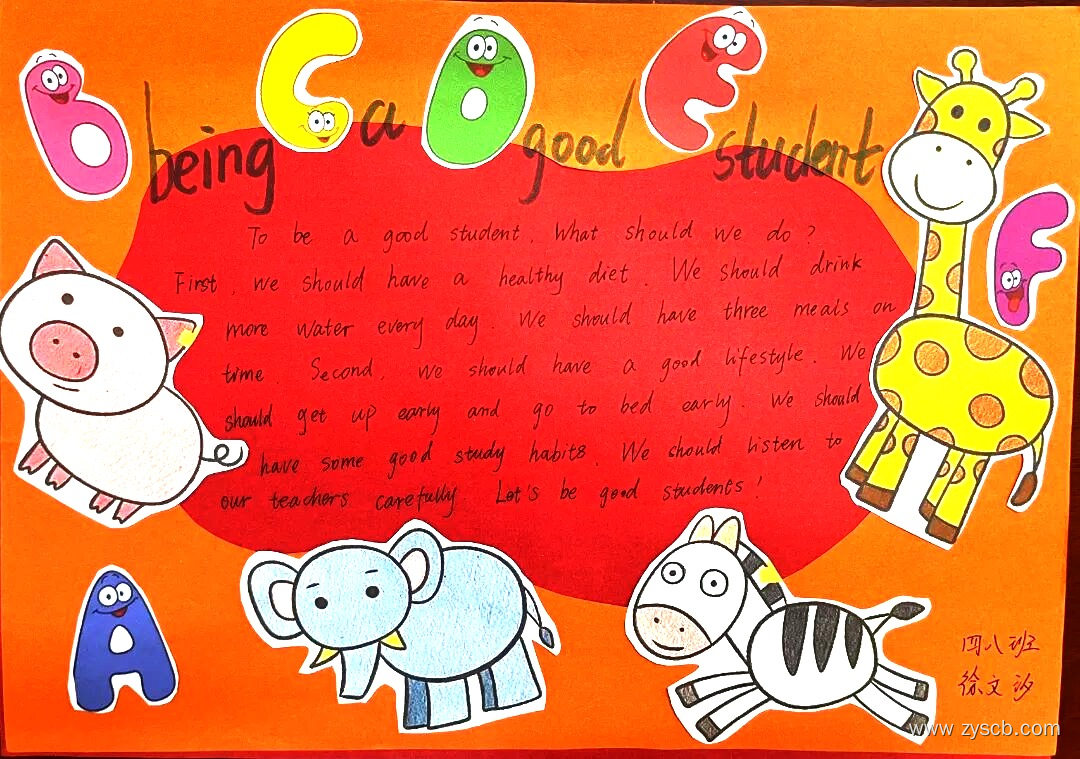 b C D E
being a good student
F
To be a good student, What should we do?
First, we should have a healthy diet. We should drink
more water every day. We should have three meals on
time Second, we should have a good lifestyle. We
should get up early and go to bed early. We should
have some good study habits. We should listen to
our teachers carefully. Let's be good students!
A
四八班
徐文汐
www.zyscb.com